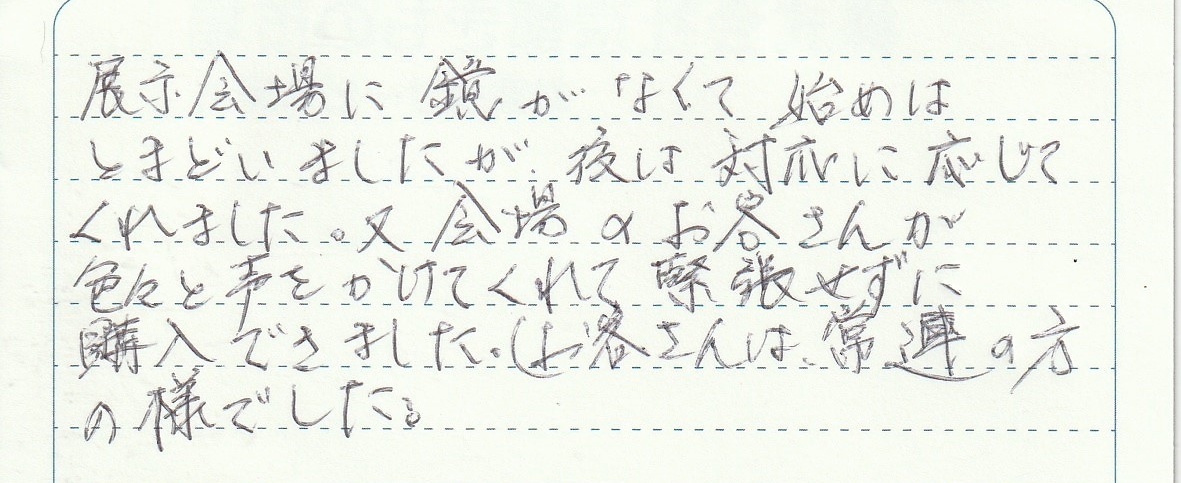 展示会場に鏡がなくて始めは
とまどいましたが、夜は対応に応じて
くれました。又会場のお客さんが
色々と声をかけてくれて緊張せずに
購入できました。(お客さんは、常連の方
の様でした。